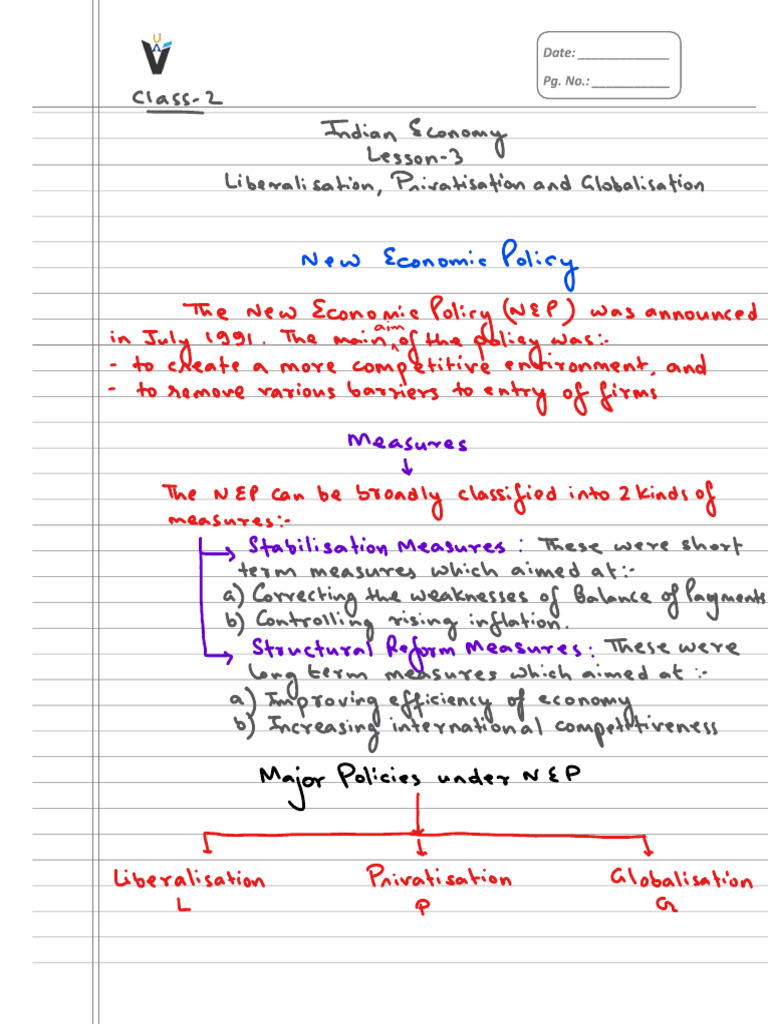 Date: ______________
Pg. No.: ____________
Class-2
Indian Economy
Lesson-3
Liberalisation, Privatisation and Globalisation
New Economic Policy
The New Economic Policy (NEP) was announced
in July 1991. The main aim of the policy was:-
- to create a more competitive environment, and
- to remove various barriers to entry of firms
Measures
The NEP can be broadly classified into 2 kinds of
measures:-
Stabilisation Measures: These were short
term measures which aimed at:-
a) Correcting the weaknesses of Balance of Payments
b) Controlling rising inflation.
Structural Reform Measures: These were
long term measures which aimed at :-
a) Improving efficiency of economy
b) Increasing international competitiveness
Major Policies under NEP
Liberalisation Privatisation Globalisation
L P G